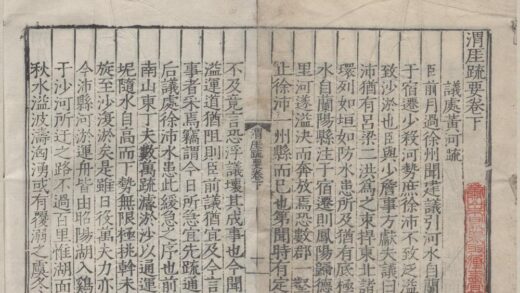 渭厓疏要卷下
議處黃河疏
臣前月過徐州聞建議引河水自蘭陽注
于宿遷少殺河勢庶徐沛不致泛溢
致沙淤也臣與少詹事方獻夫議曰
沛猶有呂梁二洪為之束捍東北諸
環列如垣如防水患所及猶有底極
水自蘭陽縣注于宿遷則鳳陽歸德
里河遂溢決而奔放焉恐數郡
止徐沛一州縣而已也第聞時有定
不及竟言恐浮議壞其成事也今聞
溢運道猶阻則臣前議猶宜及今言
事者采焉竊謂今日所急宜先疏通
後議處徐沛水患此緩急之序也前
南山東丁夫數萬疏瀹淤沙以通運
坭隨水自高而下勢無限極挑幹未
旋至沙復淤矣是雖日役萬夫力亦
今沛縣河淤運舟皆由昭陽湖入雞
于沙河所迂之路不過百里惟湖面
秋水溢波濤洶湧或有覆溺之虞冬
渭厓疏要卷下